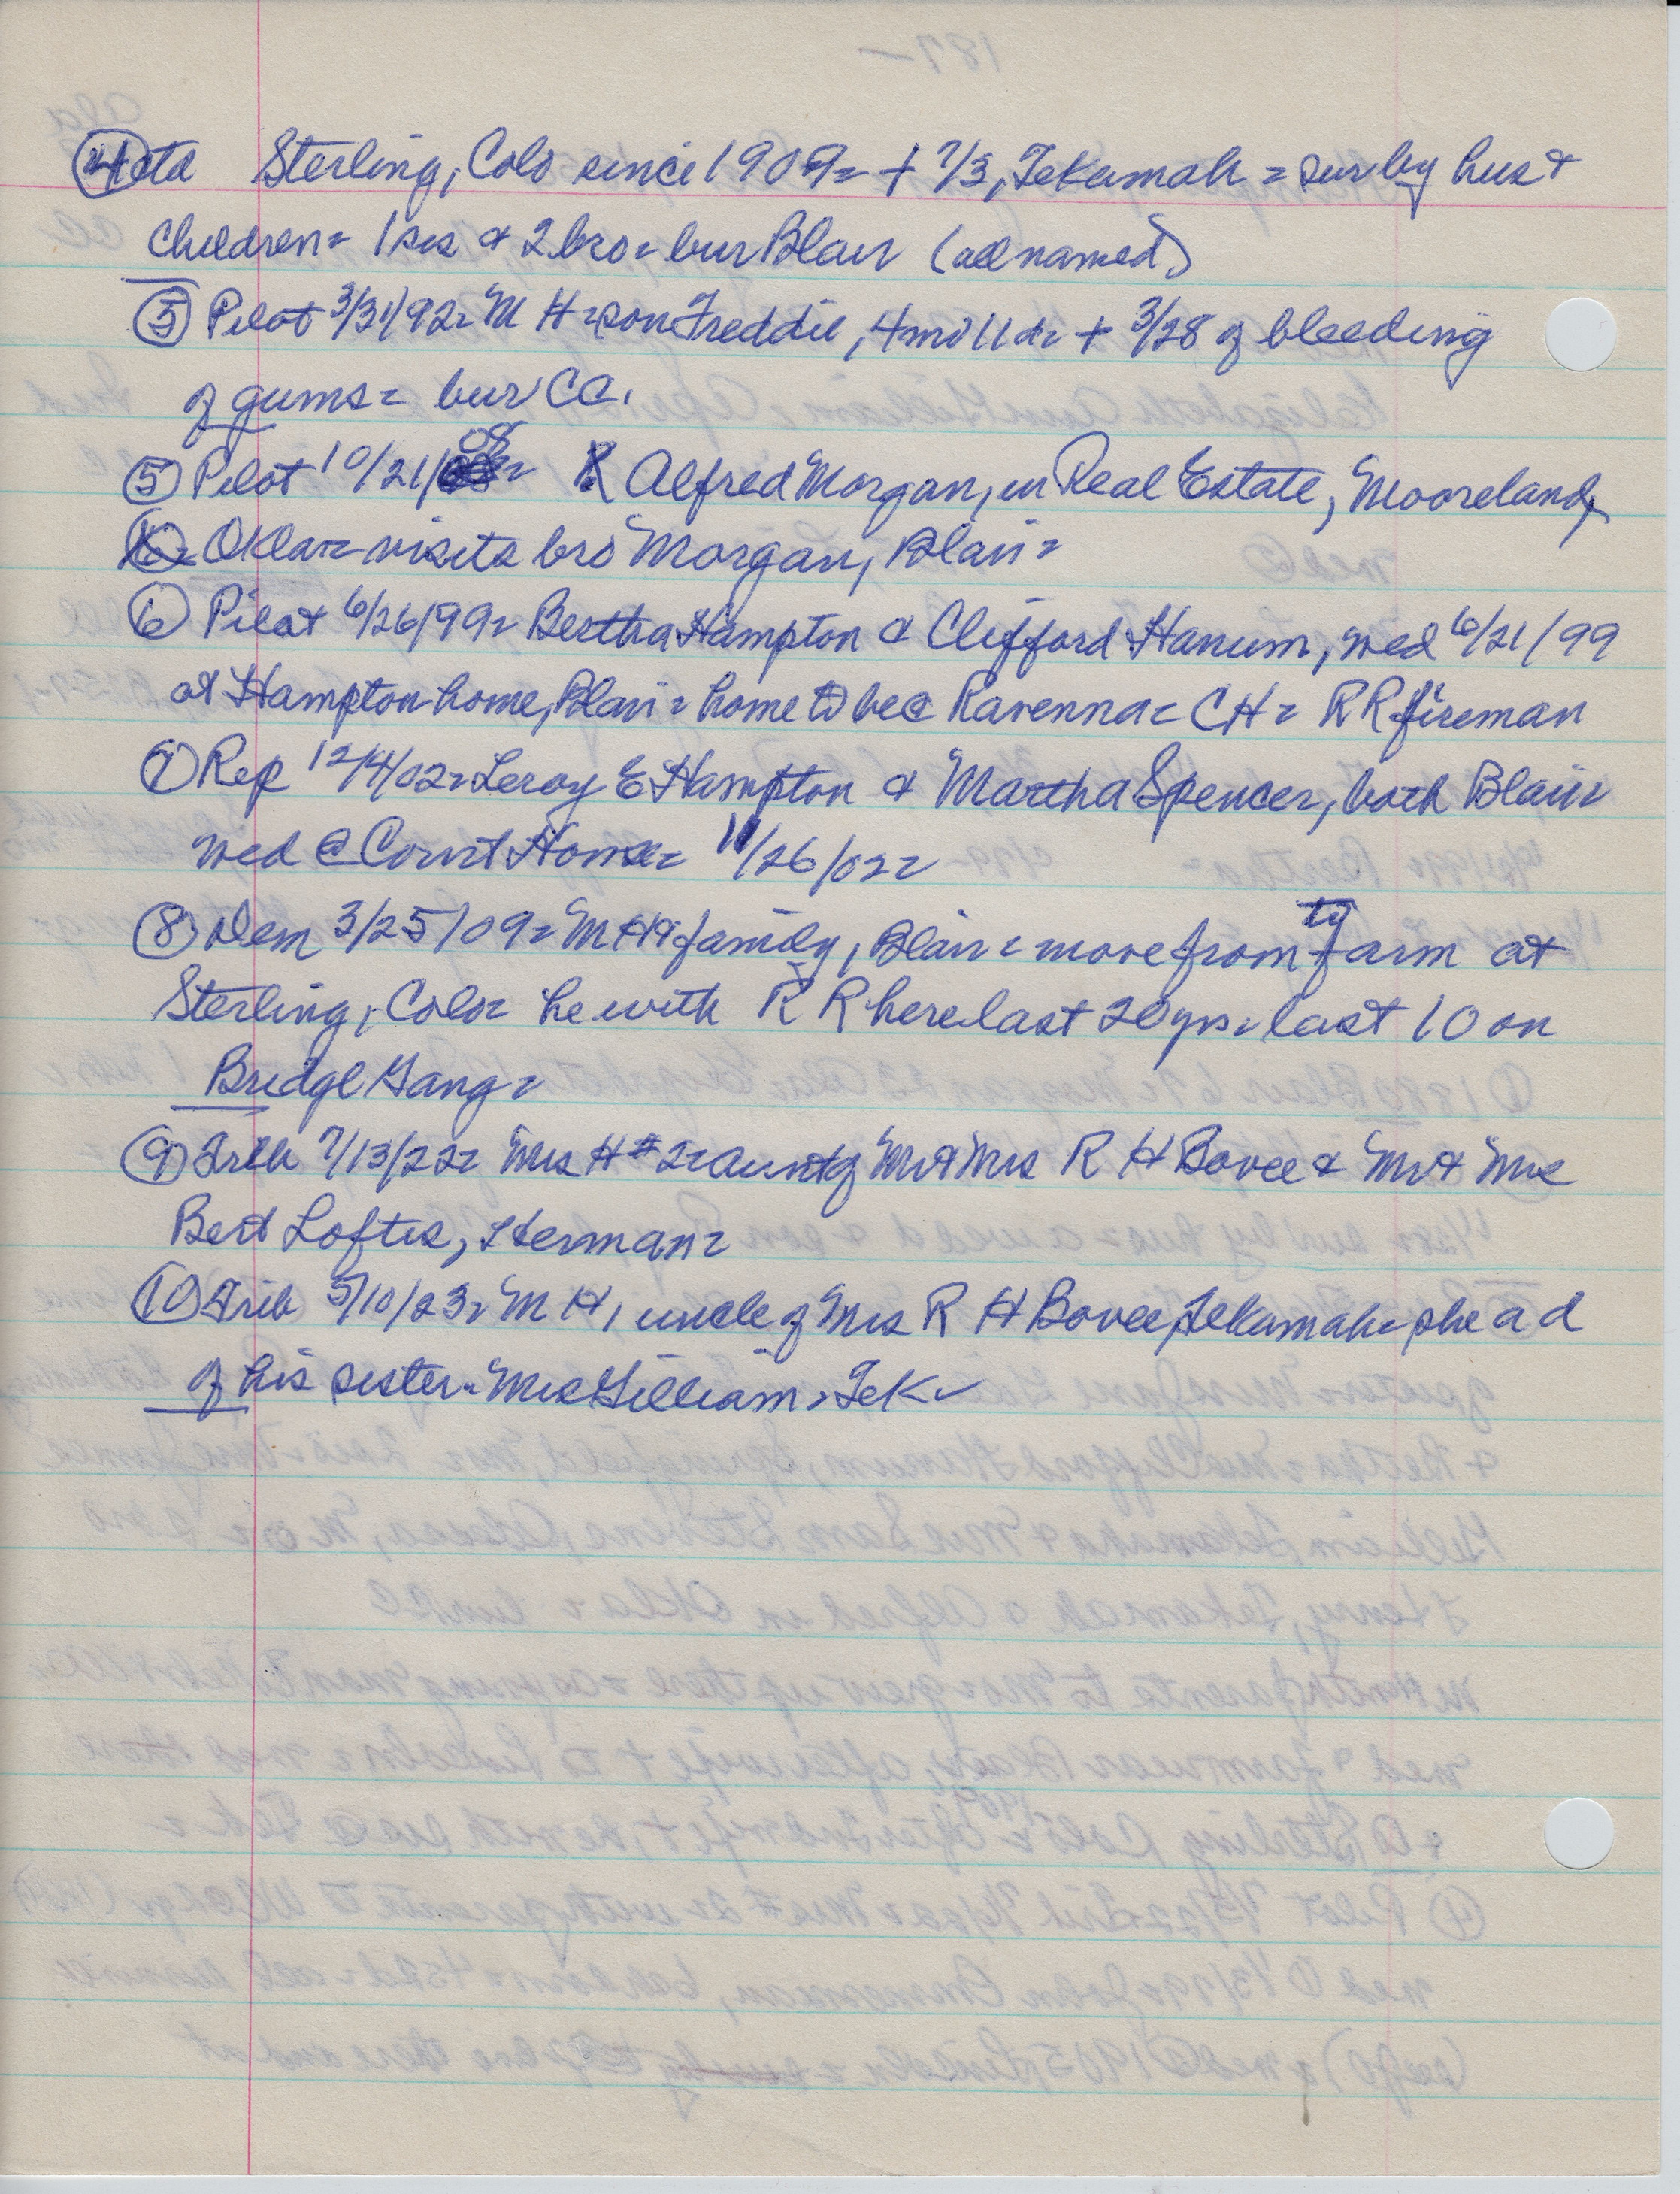 ④ctd Sterling, Colo since 1909= + 7/3, Tekamah = sur by hus &
Children= 1 sis & 2 bro= bur Blair (all named)
⑤ Pilot 3/31/92= M H= son Freddie, 4 mo 11 d= + 3/28 of bleeding
of gums= bur CC.
⑤ Pilot 10/21/08= Alfred Morgan, in Real Estate, Mooreland,
Okla= visits bro Morgan, Blair=
⑥ Pilot 6/26/99= Bertha Hampton & Clifford Hanum, wed 6/21/99
at Hampton home, Blair= home to be @ Ravenna= CH= RR fireman
⑦ Rep 12/4/02= Leroy E Hampton & Martha Spencer, both Blair=
wed @ Court House= 11/26/02=
⑧ Dem 3/25/09= M H & family, Blair= move from to farm at
Sterling, Colo= he with R R here last 20 yrs= last 10 on
Bridge Gang=
⑨ Trib 7/13/22= Mrs H #2= aunt of Mr & Mrs R H Bovee & Mr & Mrs
Bert Loftis, Herman=
⑩ Trib 5/10/23= M H, uncle of Mrs R H Bovee, Tekamah= she a d
of his sister= Mrs Gilliam, Tek